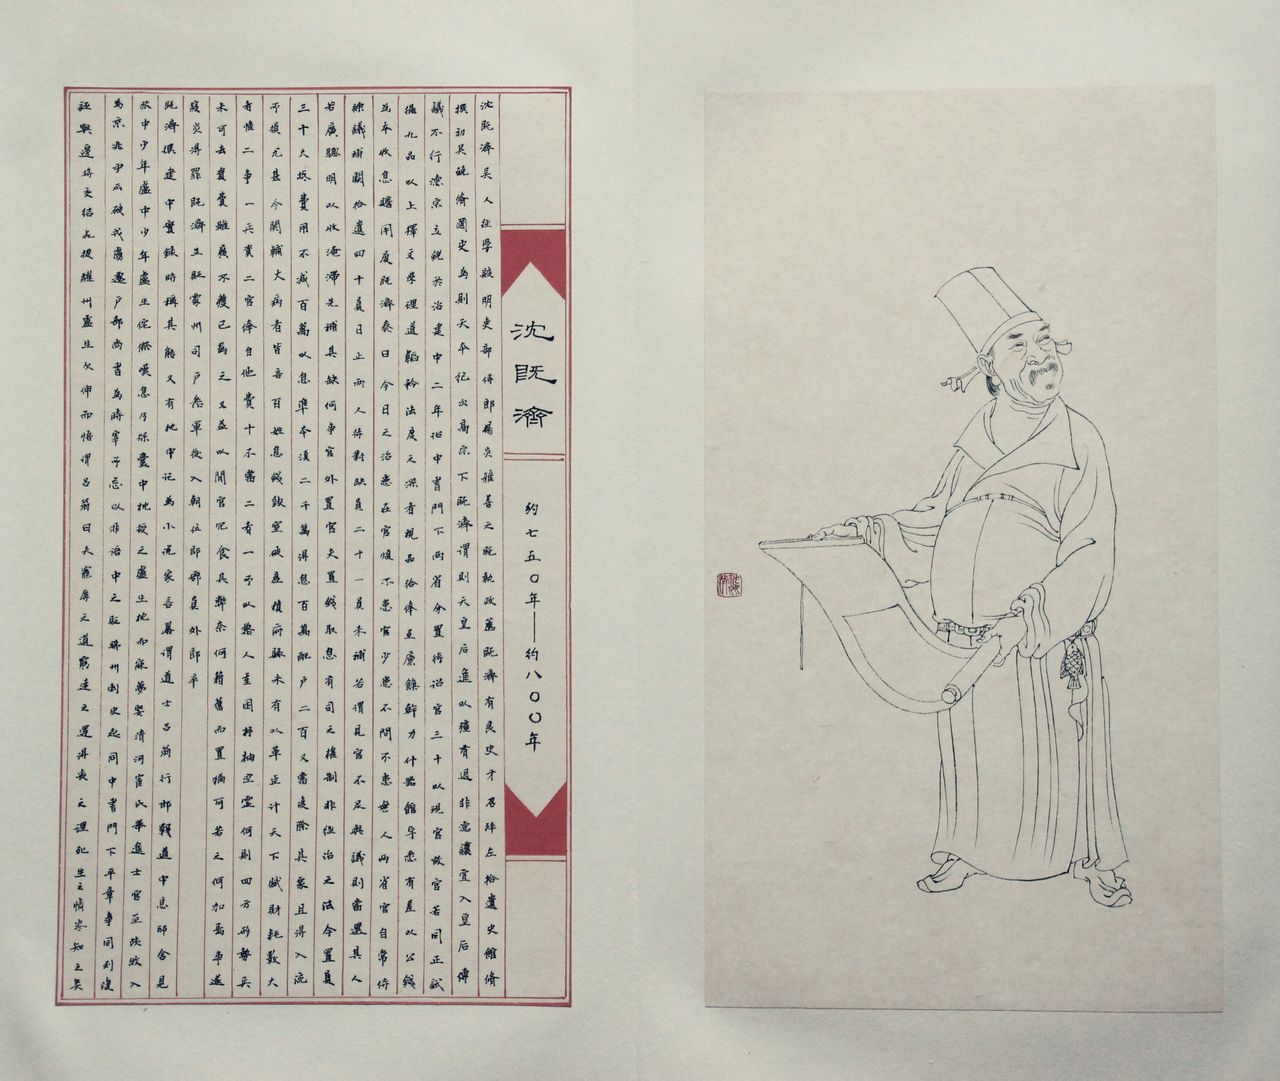 沈既濟
約七五〇年——約八〇〇年
沈既濟吳人經學該明吏部侍郎楊炎雅善之既執政薦既濟有良史才召拜左拾遺史館脩
撰初吳兢脩國史為則天本紀次高宗下既濟謂則天皇后進以彊有退非德讓宜入皇后傳
議不行德宗立銳於治建中二年詔中書門下兩省分置待詔官三十以現官故官若同正試
攝九品以上擇文學理道韜鈐法度之深者視品給俸至廩餼幹力什器館宇悉有差以公錢
為本收息贍用度既濟奏曰今日之治患在官煩不患官少患不問不患無人兩省官自常侍
諫議補闕拾遺四十員日止兩人待對缺員二十一員未補若謂見官不足與議則當選其人
若廣聰明以收淹滯先補其缺何事官外置官夫置錢取息有司之權制非經治之法今置員
三十大抵費用不減百萬以息準本須二千萬得息百萬配戶二百又當復除其家且得入流
所損尤甚今關輔大病者皆言百姓息錢毀室破產積府縣未有以革臣計天下賦財耗數大
者惟二事一兵資二官俸自他費十不當二者一所以黎人重困杼柚空虛何則四方形勢兵
未可去資費雖廣不獲已為之又益以閒官冗食其弊奈何藉舊而置猶可若之何加焉事遂
寢炎得罪既濟坐貶處州司戶叅軍後入朝位郎部員外郎卒
既濟撰建中實錄時稱其能又有枕中記為小說家言畧謂道士呂翁行邯鄲道中息邸舍見
旅中少年盧中少年盧生侘傺嘆息乃探囊中枕授之盧生枕而寐夢娶清河崔氏舉進士官至陝牧入
為京兆尹云破戎虜遷戶部尚書為時宰所忌以非語中之貶端州刺史起同中書門下平章事同列復
誣與邊將交結左授驩州盧生欠伸而悟謂呂翁曰夫寵辱之道窮達之運得喪之理死生之情盡知之矣